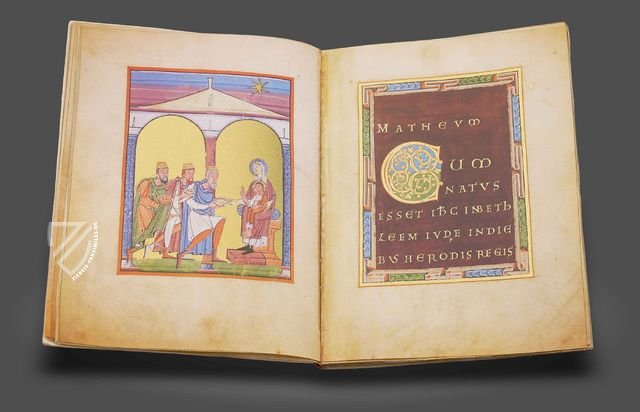 MATHEVM
CUM
NATVS
ESSET IHC INBETH
LEEM IVDE INDIE
BVS HERODIS REGIS
ZIEREIS-FAKSIMILES.DE